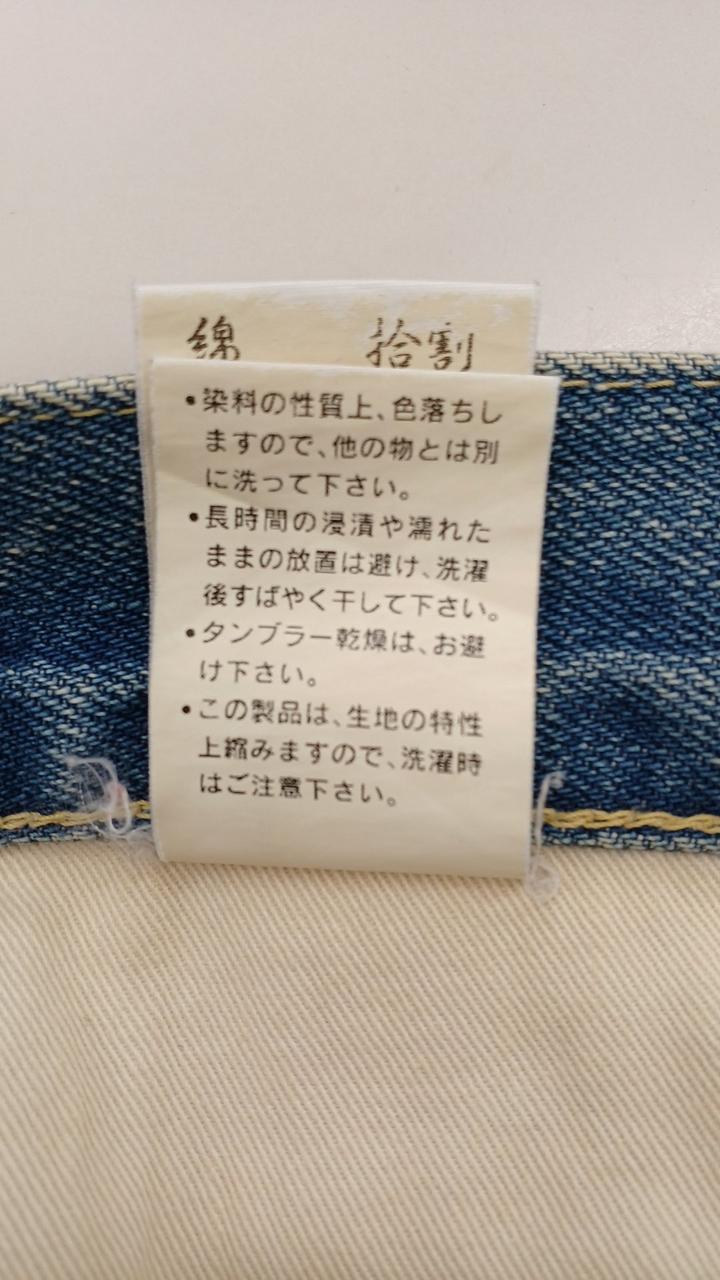 綿 拾割
•染料の性質上、色落ちし
ますので、他の物とは別
に洗って下さい。
•長時間の浸漬や濡れた
ままの放置は避け、洗濯
後すばやく干して下さい。
•タンブラー乾燥は、お避
け下さい。
•この製品は、生地の特性
上縮みますので、洗濯時
はご注意下さい。